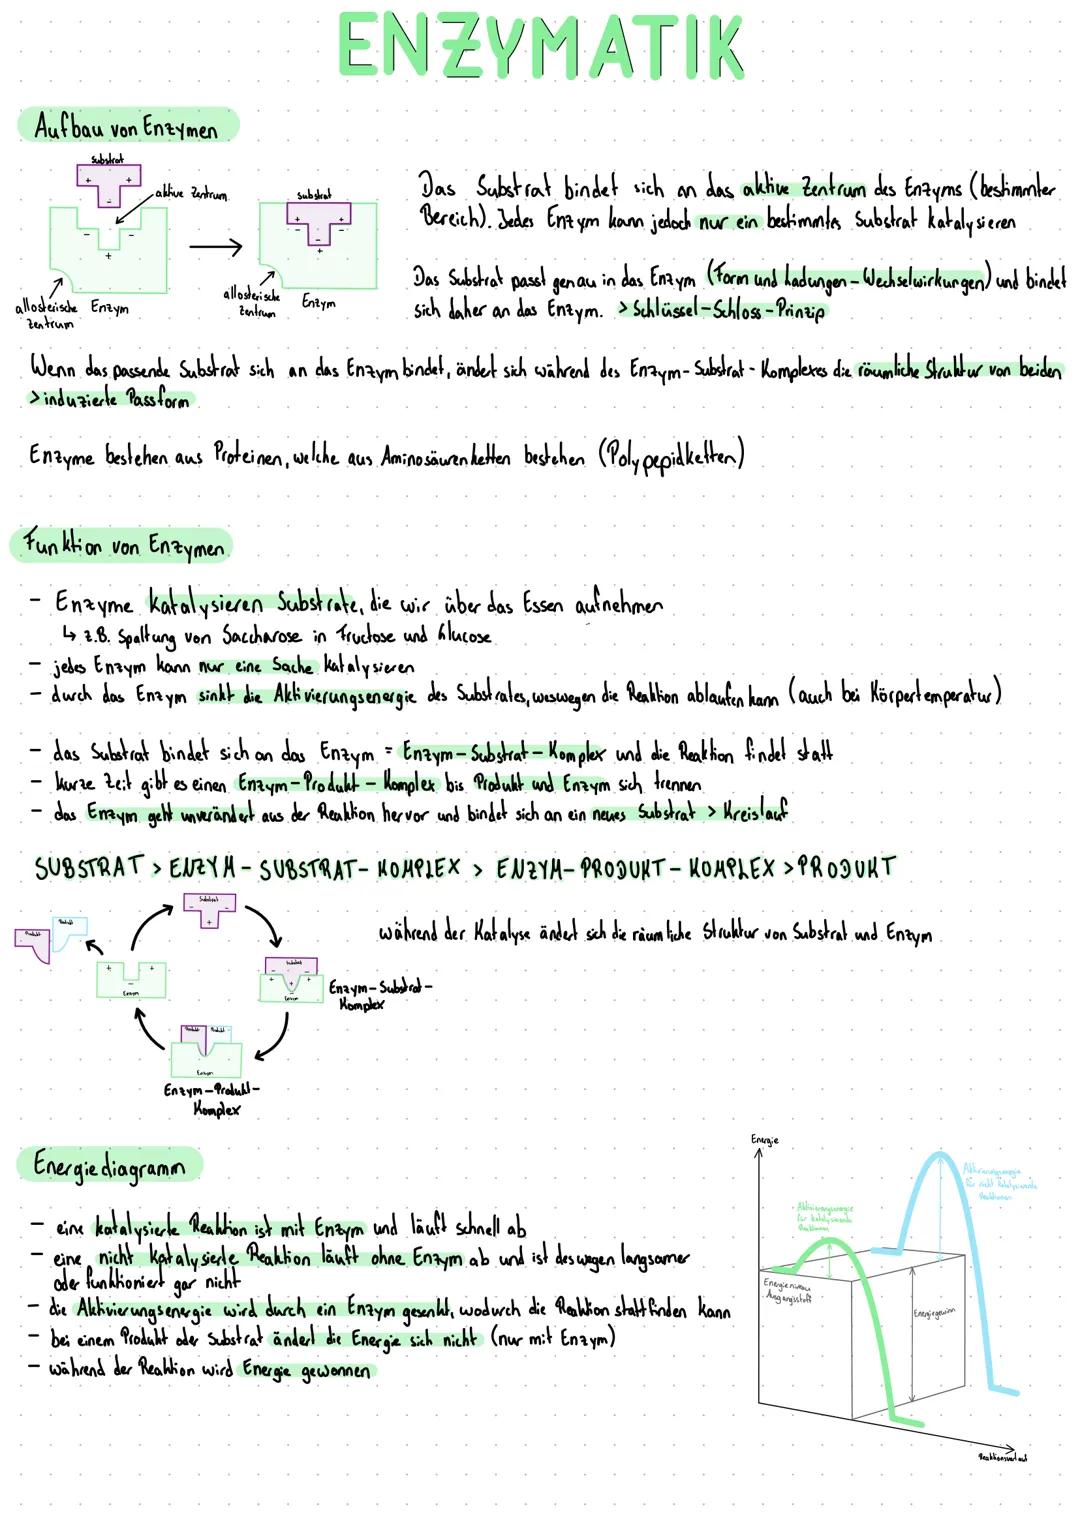 ENZYMATIK
Aufbau von Enzymen
Substrat
aktive Zentrum
allosterische
Zentrum
Enzym
Substrat
allosterische
Zentrum
Enzym
Das Substrat bindet sich an das aktive Zentrum des Enzyms (bestimmter
Bereich). Jedes Enzym kann jedoch nur ein bestimmtes Substrat katalysieren
Das Substrat passt genau in das Enzym (Form und Ladungen - Wechselwirkungen) und bindet
sich daher an das Enzym. > Schlüssel-Schloss-Prinzip
Wenn das passende Substrat sich an das Enzym bindet, ändert sich während des Enzym-Substrat-Komplexes die räumliche Struktur von beiden
> induzierte Passform
Enzyme bestehen aus Proteinen, welche aus Aminosäurenketten bestehen (Polypepidketten)
Funktion von Enzymen
- Enzyme katalysieren Substrate, die wir über das Essen aufnehmen
↳ z.B. Spaltung von Saccharose in Fructose und Glucose
- jedes Enzym kann nur eine Sache katalysieren
- durch das Enzym sinkt die Aktivierungsenergie des Substrates, weswegen die Reaktion ablaufen kann (auch bei Körpertemperatur)
- das Substrat bindet sich an das Enzym = Enzym-Substrat-Komplex und die Reaktion findet statt
- kurze Zeit gibt es einen Enzym-Produkt-Komplex bis Produkt und Enzym sich trennen
- das Enzym geht unverändert aus der Reaktion hervor und bindet sich an ein neues Substrat > Kreislauf
SUBSTRAT > ENZYM-SUBSTRAT-KOMPLEX > ENZYM-PRODUKT-KOMPLEX > PRODUKT
während der Katalyse ändert sich die räumliche Struktur von Substrat und Enzym
Substrat
Produkt
Produkt
Enzym
Substrat
Enzym
Enzym-Substrat-
Komplex
Produkt
Produkt
Enzym
Enzym-Produkt-
Komplex
Energiediagramm
- eine katalysierte Reaktion ist mit Enzym und läuft schnell ab
- eine nicht katalysierte Reaktion läuft ohne Enzym ab und ist deswegen langsamer
oder funktioniert gar nicht
- die Aktivierungsenergie wird durch ein Enzym gesenkt, wodurch die Reaktion stattfinden kann
- bei einem Produkt oder Substrat ändert die Energie sich nicht (nur mit Enzym)
- während der Reaktion wird Energie gewonnen
Energie
Aktivierungsenergie
für nicht katalysierende
Reaktionen
Aktivierungsenergie
für katalysierende
Reaktionen
Energieniveau
Ausgangsstoff
Energiegewinn
Reaktionsverlauf